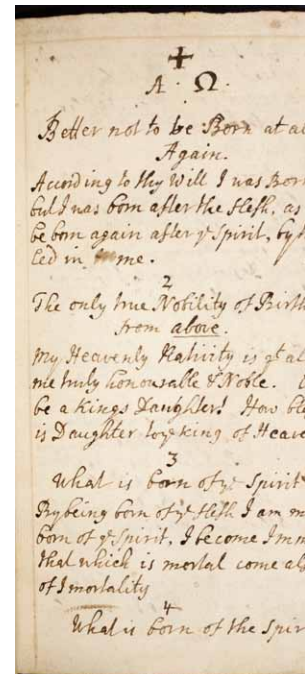 A. Ω.
Better not to be Born at al
Again.
According to thy will I was Born
but I was born after the flesh, as
be born again after ye Spirit, by
led in me.
2
The only true Nobility of Birth
from above.
My Heavenly Nativity is yt
me truly honourable & Noble.
be a Kings Daughter! How ble
is Daughter to ye King of Heave
3
What is born of ye Spirit
By being born of ye flesh I am m
born of ye Spirit, I become Imm
that which is mortal come
of Imortality
4
What is born of the Spir